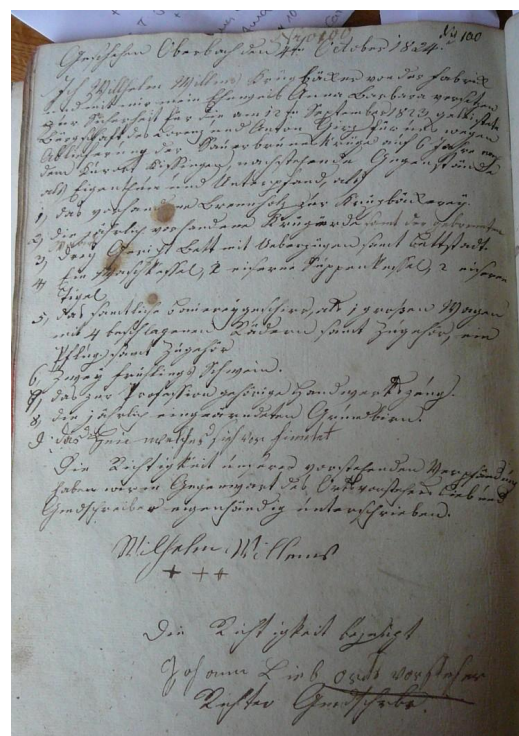 No 100
No 100
Geschehen Oberbach den 4ten October 1824.
Ich Wilhelm Willems Krugbäcker von der Fabrik
und mit mir mein Eheweib Anna Barbara
der Sicherheit für die am 12ten September 1823 geleistete
Bürgschaft des und Anton für uns wegen
Ablieferung der Sauerbrunnenkrüge auf 6 Jahre nach
dem Kurort Kissingen, nachstehende Gegenstände
als Eigenthum und Unterpfand, als
1, das vorhandene Brennholz zur Krugbäckerey.
2, die jährlich vorhandene Krügerde samt der gebrannten
3, drey Bett mit Ueberzügen samt Bettstadt.
4 Ein Waschkessel, 2 eiserne Suppenkessel, 2 eiserne
Tigel
5, das sämtliche Bauereygeschirr, als 1 großen Wagen
mit 4 beschlagenen Rädern samt Zugehör, ein
Pflug samt Zugehör
6, zwey frühlings Schwein.
7, das zur Profession gehörige Handwerkszeug.
8, die jährlich eingeerndeten Grundbirn.
9 das Heu welches sich vor findet
Die Richtigkeit unseres vorstehenden Verpfändung
haben wir in Gegenwart des Ortsvorstehers Lieb und
Gmdschreiber eigenhändig unterschrieben.
Wilhelm Willems
+ + +
Die Richtigkeit bezeugt
Johann Lieb orts vorsteher
Richter Gmdschrbr.